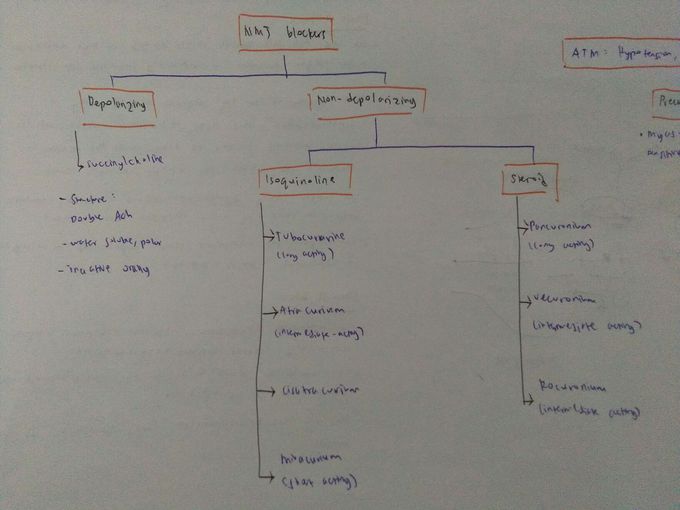 NMJ blockers
ATM: Hypotension,
Depolarizing
Non-depolarizing
succinylcholine
Isoquinoline
Steroid
- Structure:
Double Ach
- water soluble, polar
- inactive orally
Tubocurarine
(long acting)
Atracurium
(intermediate-acting)
Cisatracurium
Mivacurium
(short acting)
Pancuronium
(long acting)
Vecuronium
(intermediate acting)
Rocuronium
(intermediate acting)